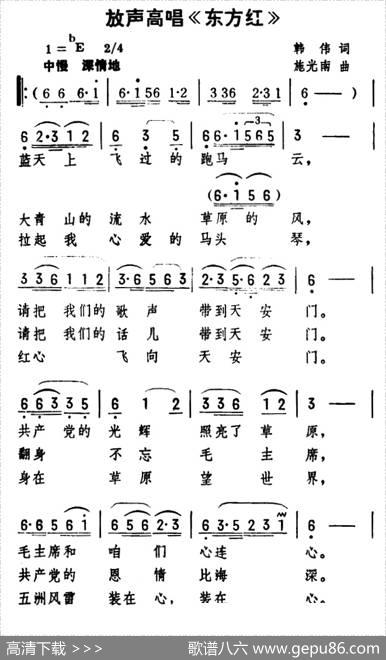 放声高唱《东方红》
1=ᵇE 2/4 韩伟 词
中慢 深情地 施光南 曲
(6 6 6·1 | 6·156 1·2 | 336 2·31 | 6 —)
6 2·312 | 6 3 5 | 66·1565 | 3 — |
蓝天上 飞过的 跑马 云,
(6·156)
大青山的流水 草原的风,
拉起我 心爱的 马头琴,
336 112 | 3·6 563 | 2·35·623 | 6 — |
请把我们的歌声 带到天安门。
请把我们的话儿 带到天安门。
红心 飞向 天安门。
66335 | 6 12 | 336 12 | 3 — |
共产党的光辉 照亮了草原,
翻身 不忘 毛主席,
身在 草原 望世界,
6·6561 | 2·356 2·3 | 63·5231 | 6 — |
毛主席和 咱们 心连心。
共产党的 恩情 比海深。
五洲风雷 装在心,装在心。
高清下载 >>> 歌谱八六 www.gepu86.com